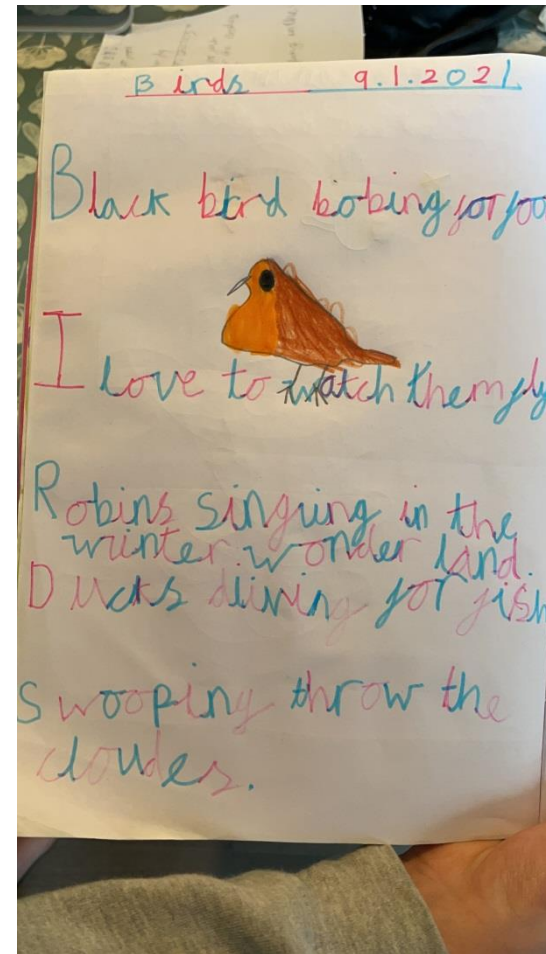 Birds 9.1.2021
Black bird bobing for foo
I love to watch them fly
Robins singing in the
winter wonder land.
Ducks diving for fish
Swooping throw the
cloudes.